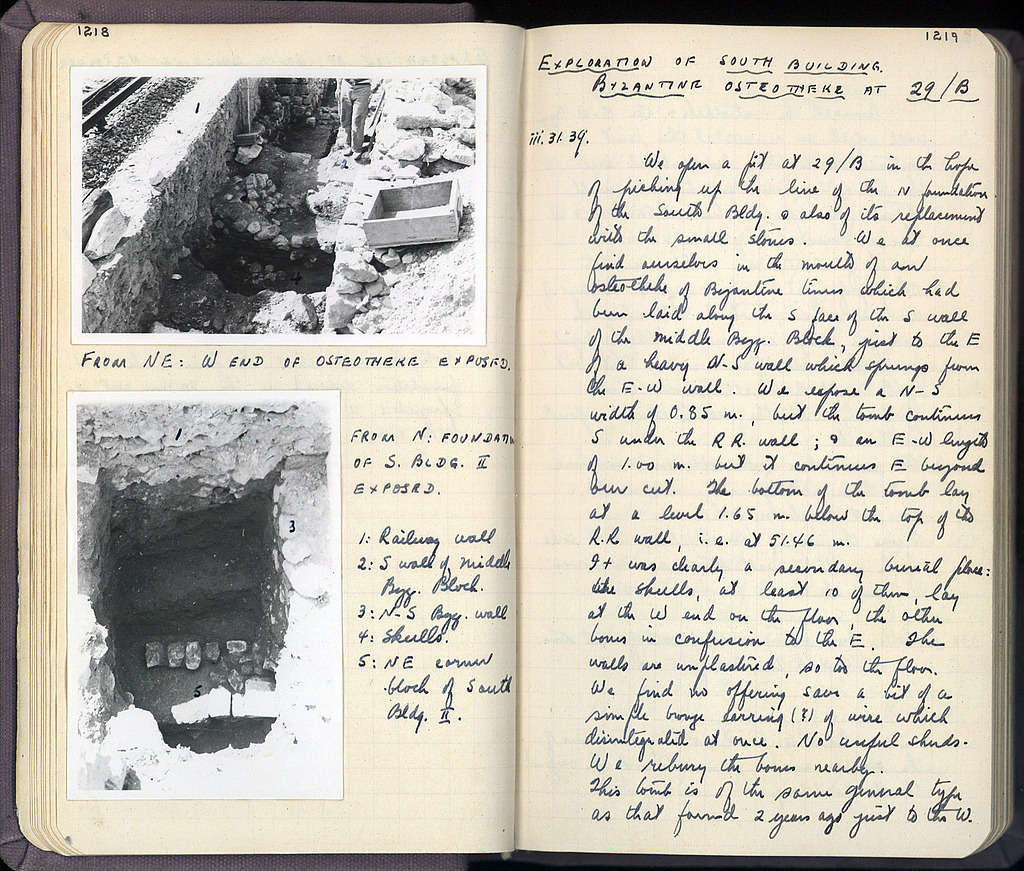 1218
1
4
FROM NE: W END OF OSTEOTHEKE EXPOSED.
1
3
5
FROM N: FOUNDATN
OF S. BLDG. II
EXPOSED.
1: Railway wall
2: S wall of middle
Byz. Block.
3: N-S Byz. wall
4: Skulls.
5: NE corner
block of South
Bldg. II.
1219
EXPLORATION OF SOUTH BUILDING.
BYZANTINE OSTEOTHEKE AT 29/B
iii.31.39.
We open a pit at 29/B in the hope
of picking up the line of the N foundation
of the South Bldg. & also of its replacement
with the small stones. We at once
find ourselves in the mouth of an
osteotheke of Byzantine times which had
been laid along the S face of the S wall
of the middle Byz. Block, just to the E
of a heavy N-S wall which springs from
the E-W wall. We expose a N-S
width of 0.85 m, but the tomb continues
S under the R.R. wall; & an E-W length
of 1.00 m. but it continues E beyond
our cut. The bottom of the tomb lay
at a level 1.65 m. below the top of the
R.R wall, i.e. at 51.46 m.
It was clearly a secondary burial place:
the skulls, at least 10 of them, lay
at the W end on the floor, the other
bones in confusion to the E. The
walls are unplastered, so too the floor.
We find no offering save a bit of a
simple bronze earring (?) of wire which
disintegrated at once. No useful sherds.
We rebury the bones nearby.
This tomb is of the same general type
as that found 2 years ago just to the W.